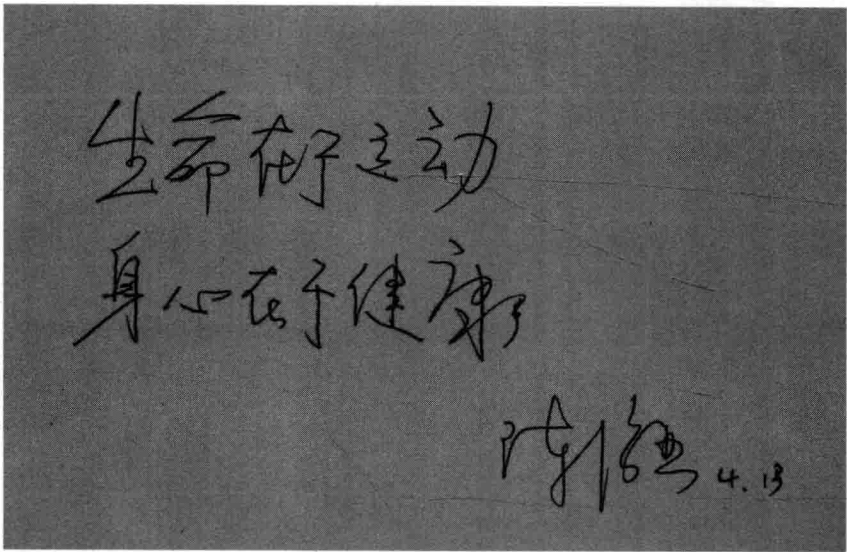 生命在于运动
身心在于健康
陈 4.13